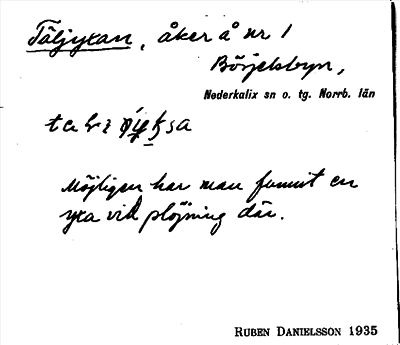 Täljyxan, åker å nr 1
Börjelsbyn,
Nederkalix sn o. tg. Norrb. län
Möjligen har man funnit en
yxa vid plöjning där.
RUBEN DANIELSSON 1935